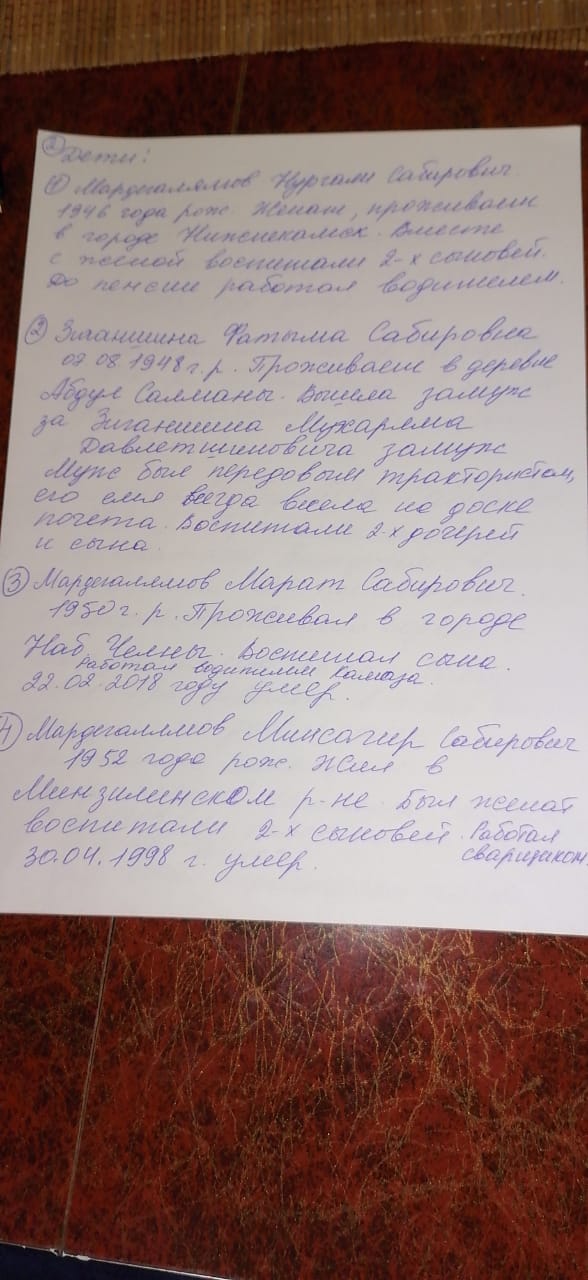 ② Дети:
① Мардегаллямов Нургали Сабирович.
1946 года рож. Женат, проживает
в городе Нижнекамск. Вместе
с женой воспитали 2-х сыновей.
До пенсии работал водителем.
② Зиганшина Фатыма Сабировна
07.08.1948 г.р. Проживает в деревне
Абдул Салманы. Вышла замуж
за Зиганшина Мухаряма
Давлетшиновича замуж
Муж был передовым трактористом,
его имя всегда висела на доске
почета. Воспитали 2-х дочерей
и сына.
③ Мардегаллямов Марат Сабирович.
1950 г.р. Проживал в городе
Наб. Челны. Воспитал сына.
Работал водителем Камаза.
22.02.2018 году умер.
④ Мардегаллямов Минсагир Сабирович
1952 года рож. Жил в
Мензилинском р-не. Был женат
воспитали 2-х сыновей. Работал
сварщиком.
30.04.1998 г. умер.